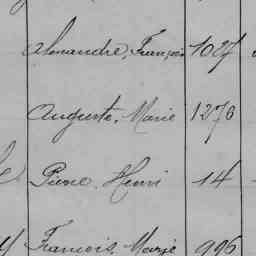 Alexandre, François 1027
Auguste, Marie 1276
Pierre, Henri 14
François, Marie 996